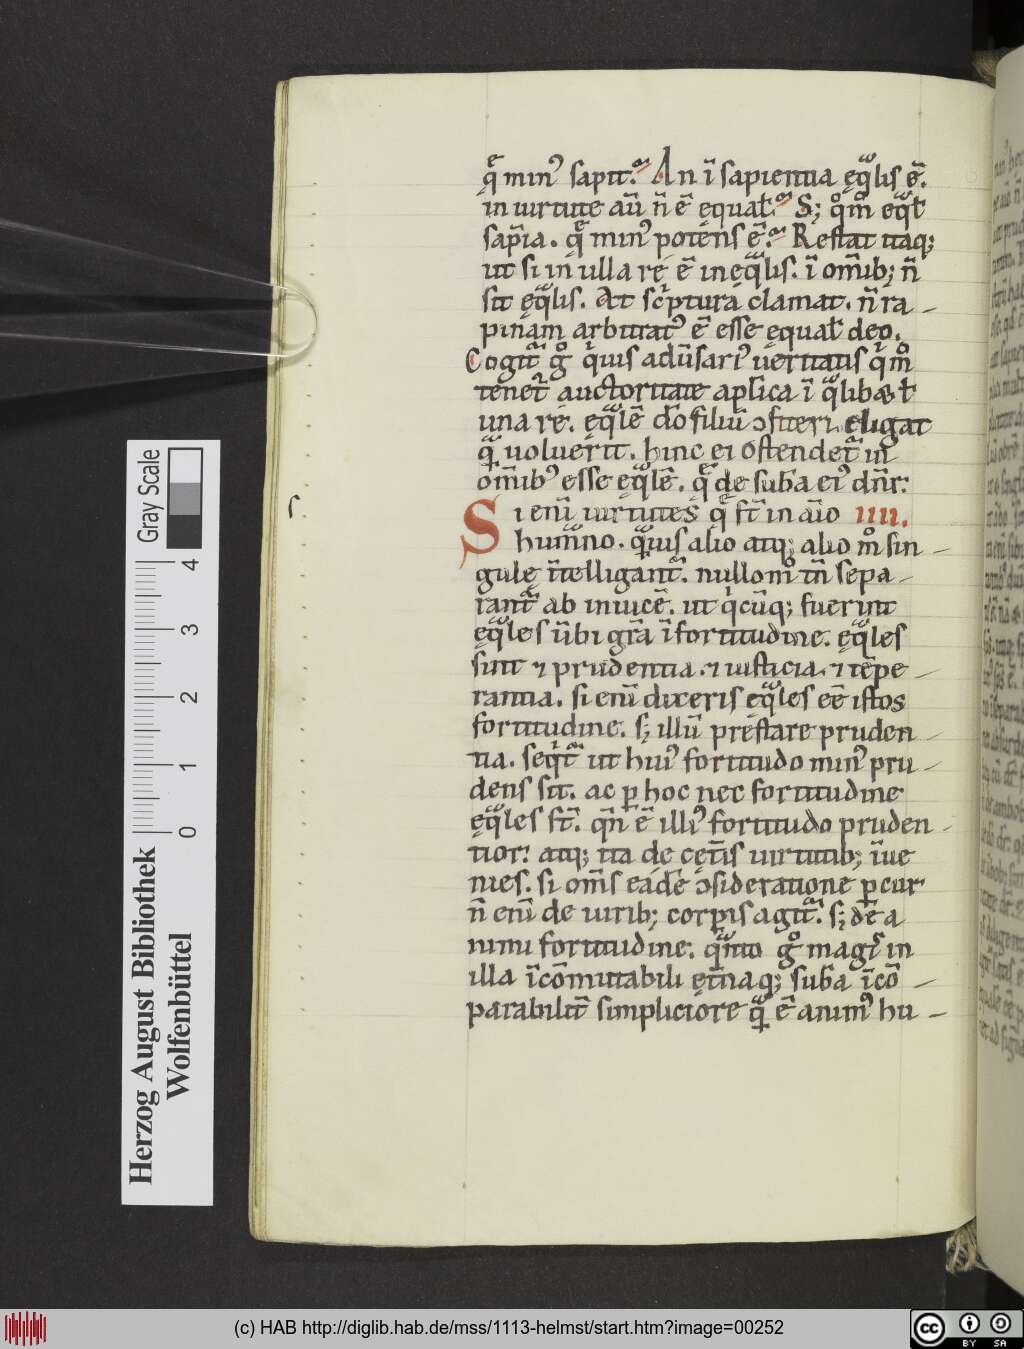 q̄ minꝰ sapit. An ī sapientia ęq̄lis ē.
in uirtute aū n̄ ē equal̄. S; q̊m̊ eq̄l̄
sap̄ia. q̄ minꝰ potens ē. Restat itaq;
ut si in ulla re ē inęq̄lis. ī om̄ib; n̄
sit ęq̄lis. At sc̄ptura clamat. n̄ ra-
pinam arbitratꝰ ē esse ęqual̄ deo.
Cogit̄ g̊ q̇uis adūsariꝰ ueritatis q̇m̊
tenet̄ auctoritate aplica ī q̄libæ l̄
una re. ęq̄lē dō filiū ɔfiteri. eligat
q̄ uoluerit. hinc ei ostendet̄ in
om̄ibꝰ esse ęq̄lē. q̄ de suba eiꝰ dn̄r.
Si enī uirtutes q̄ st̄ in aīo IIII.
humāno. q̄uis alio atq; alio m̊ sin-
gulę ītelligant̄. nullom̊ tn̄ sepa-
rant̄ ab inuicē. ut q̇cūq; fuerint
ęq̄les ūbi gr̄a ī fortitudine. ęq̄les
sint ⁊ prudentia. ⁊ iusticia. ⁊ tēpe-
rantia. si enī dixeris ęq̄les eē istos
fortitudine. s; illū prestare pruden-
tia. seq̇t̄ ut huiꝰ fortitudo minꝰ pru-
dens sit. ac p hoc nec fortitudine
ęq̄les st̄. qn̄ ē illiꝰ fortitudo pruden-
tior. atq; ita de cęt̄is uirtutib; īue-
nies. si om̄s eadē ɔsideratione pcur
n̄ enī de uirib; corpis agit̄. s; dē a
nimi fortitudine. q̄nto g̊ magis in
illa īcōmutabili ęt̄naq; suba īcō-
parabilit̄ simpliciore q̄ ē animꝰ hu-
Gray Scale
4
3
2
1
0
Herzog August Bibliothek
Wolfenbüttel
(c) HAB http://diglib.hab.de/mss/1113-helmst/start.htm?image=00252
cc
BY SA